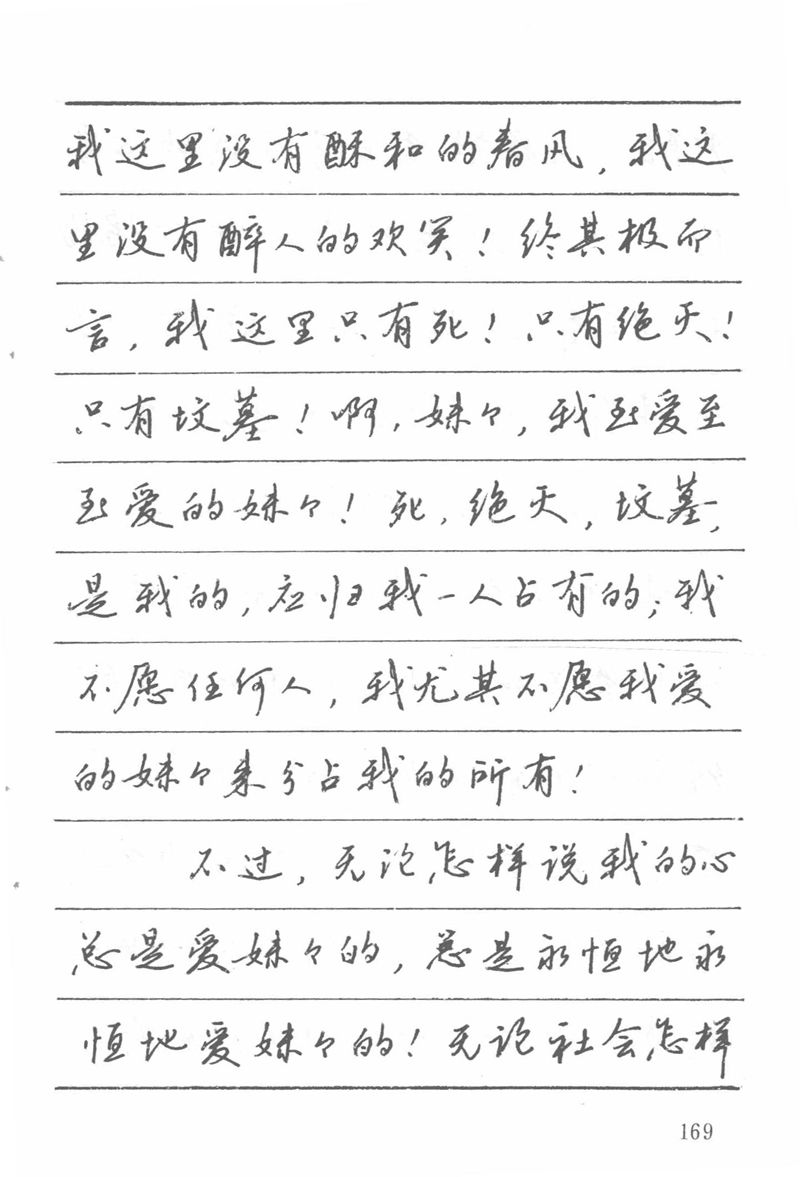 我这里没有酥和的春风，我这
里没有醉人的欢笑！终其极而
言，我这里只有死！只有绝灭！
只有坟墓！啊，妹々，我至爱至
至爱的妹々！死，绝灭，坟墓，
是我的，应归我一人占有的；我
不愿任何人，我尤其不愿我爱
的妹々来分占我的所有！
不过，无论怎样说我的心
总是爱妹々的，总是永恒地永
恒地爱妹々的！无论社会怎样
169